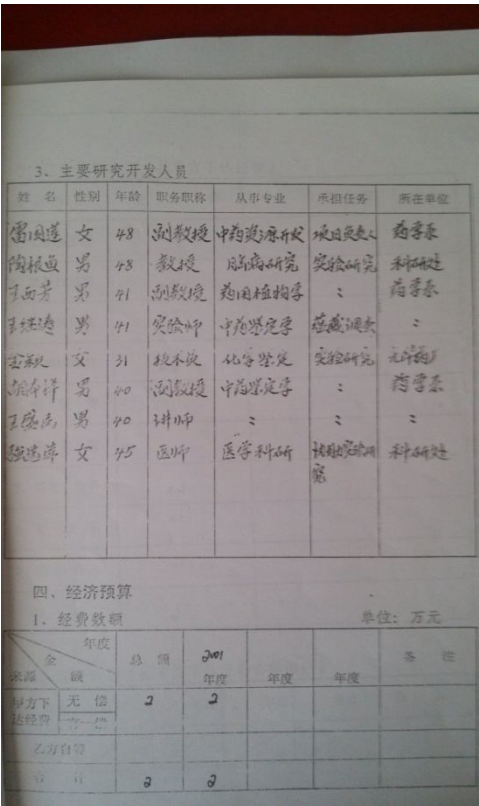 3、主要研究开发人员
姓 名 性别 年龄 职务职称 从事专业 承担任务 所在单位
雷国莲 女 48 副教授 中药资源开发 项目负责人 药学系
陶根鱼 男 48 教授 脑病研究 实验研究 科研处
王西芳 男 41 副教授 药用植物学 :: 药学系
王继涛 男 41 实验师 中药鉴定学 蕴藏调查 ::
女 31 技术员 化学鉴定 实验研究
胡本祥 男 40 副教授 中药鉴定学 :: 药学系
王 男 40 讲师 :: :: ::
女 45 医师 医学科研 实验研 科研处
究
四、经济预算
1、经费数额 单位:万元
年度
金 总 额 2001 备 注
来源 额 年度 年度 年度
甲方下 无 偿 2 2
达经费 有 偿
乙方自筹
合 计 2 2